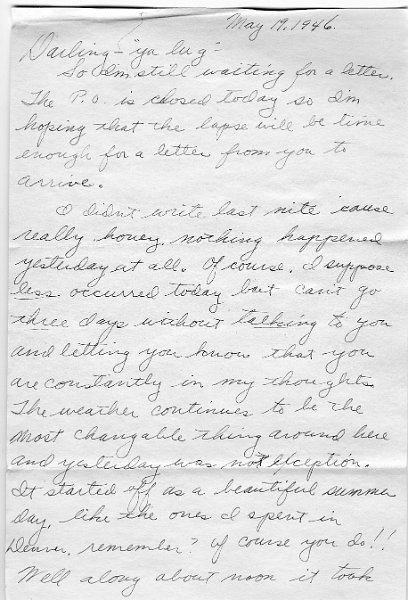 May 19, 1946.
Darling - "ya lug" -
So I'm still waiting for a letter.
The P.O. is closed today so I'm
hoping that the lapse will be time
enough for a letter from you to
arrive.
I didn't write last nite 'cause
really honey, nothing happened
yesterday at all. Of course, I suppose
less occurred today but can't go
three days without talking to you
and letting you know that you
are constantly in my thoughts.
The weather continues to be the
most changable thing around here
and yesterday was not exception.
It started off as a beautiful summer
day, like the ones I spent in
Denver, remember? Of course you do!!
Well along about noon it took